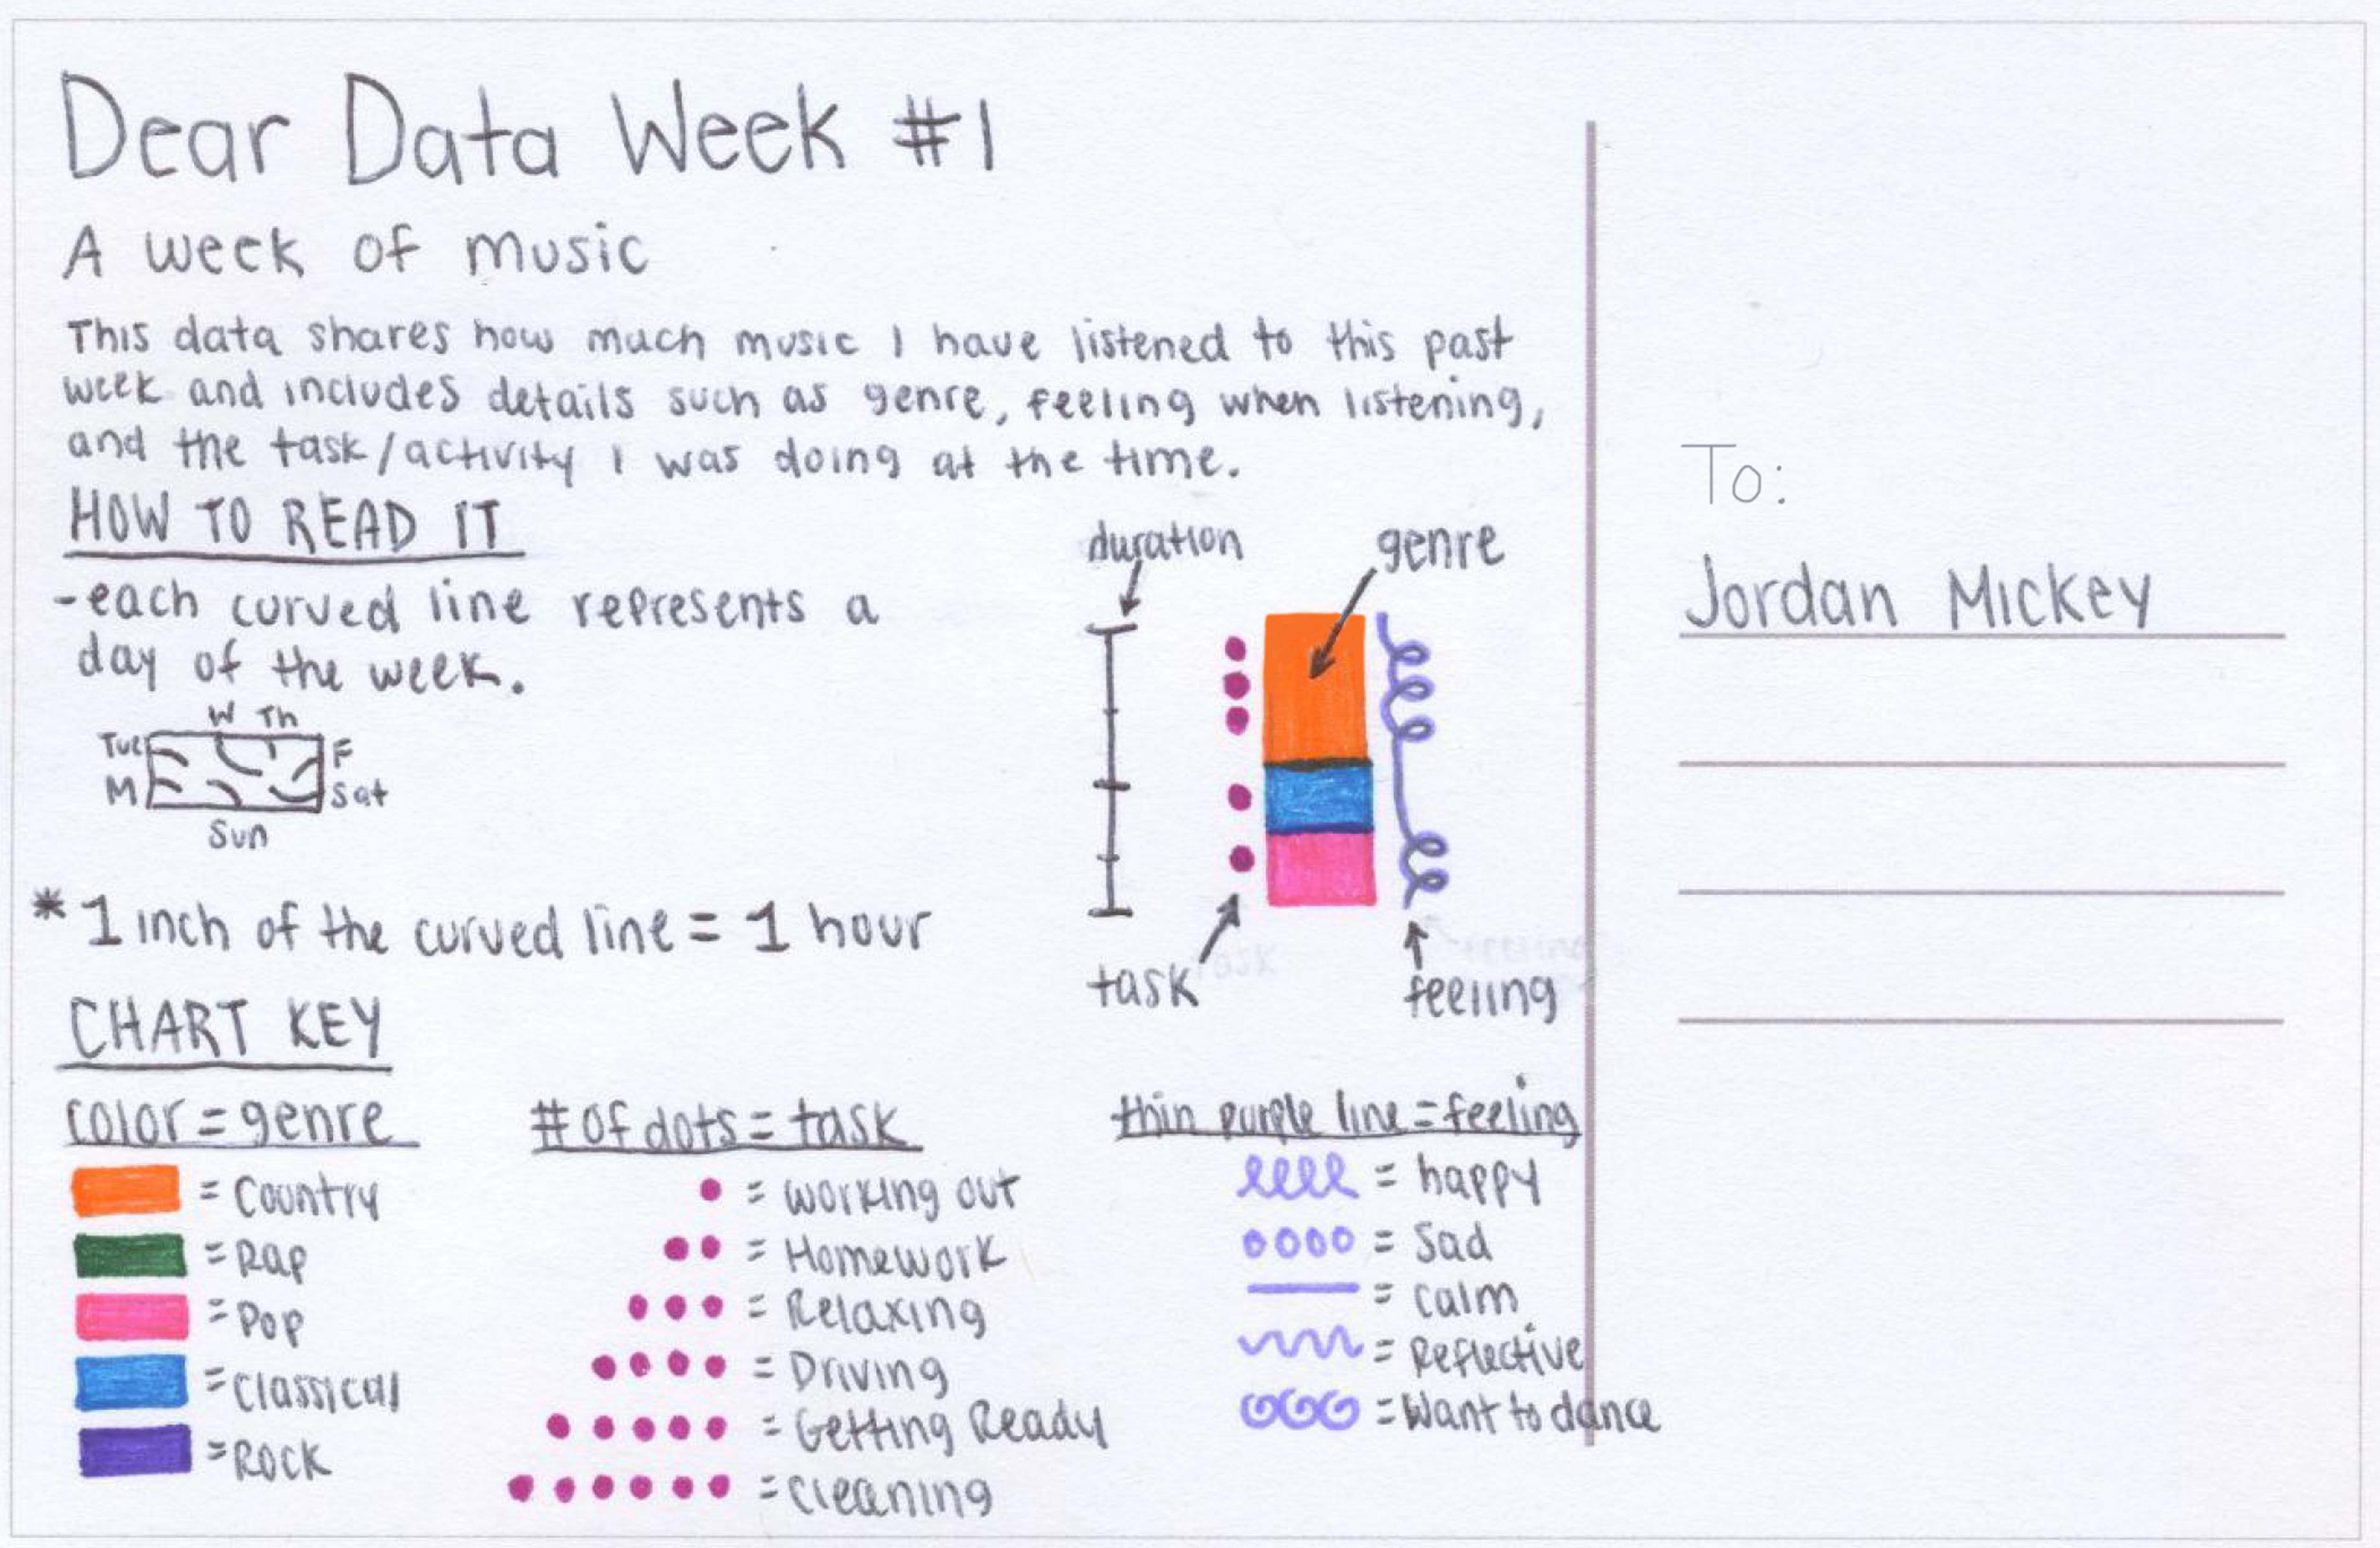 Dear Data Week #1
A week of music
This data shares how much music I have listened to this past
week and includes details such as genre, feeling when listening,
and the task/activity I was doing at the time.
HOW TO READ IT
-each curved line represents a
day of the week.
W Th
Tue F
M Sat
Sun
* 1 inch of the curved line = 1 hour
duration genre
task feeling
CHART KEY
color = genre
= Country
= Rap
= Pop
= Classical
= Rock
# of dots = task
= working out
= Homework
= Relaxing
= Driving
= Getting Ready
= cleaning
thin purple line = feeling
= happy
= Sad
= calm
= Reflective
= Want to dance
To:
Jordan Mickey